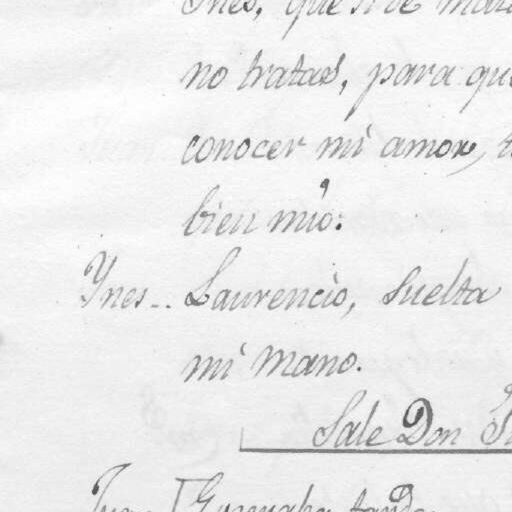 Ines, que si de
no tratas, para que
conocer mi amor,
bien mío:
Ynes.. Laurencio, suelta
mi mano.
Sale Don